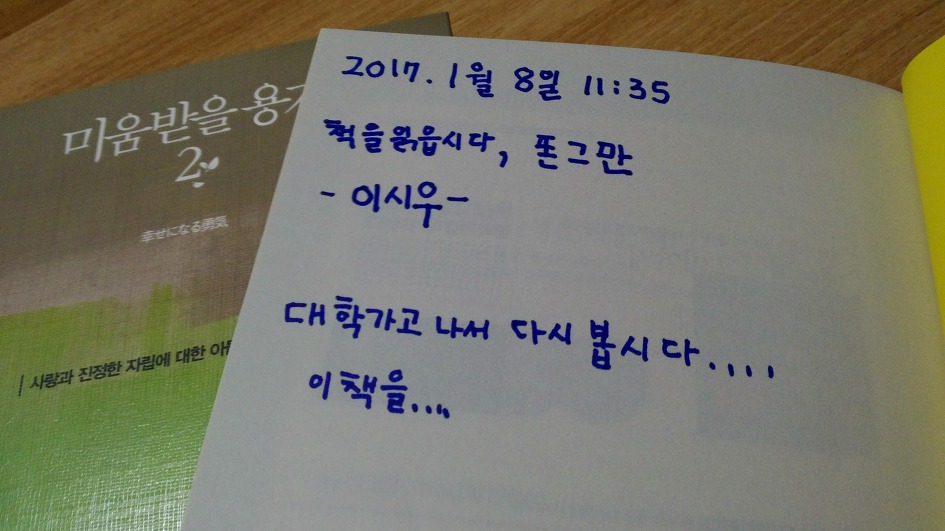 미움받을 용
2
幸せになる勇気
사랑과 진정한 자립에 대한
2017. 1월 8일 11:35
책을 읽읍시다, 폰그만
- 이시우 -
대학가고 나서 다시 봅시다....
이 책을....